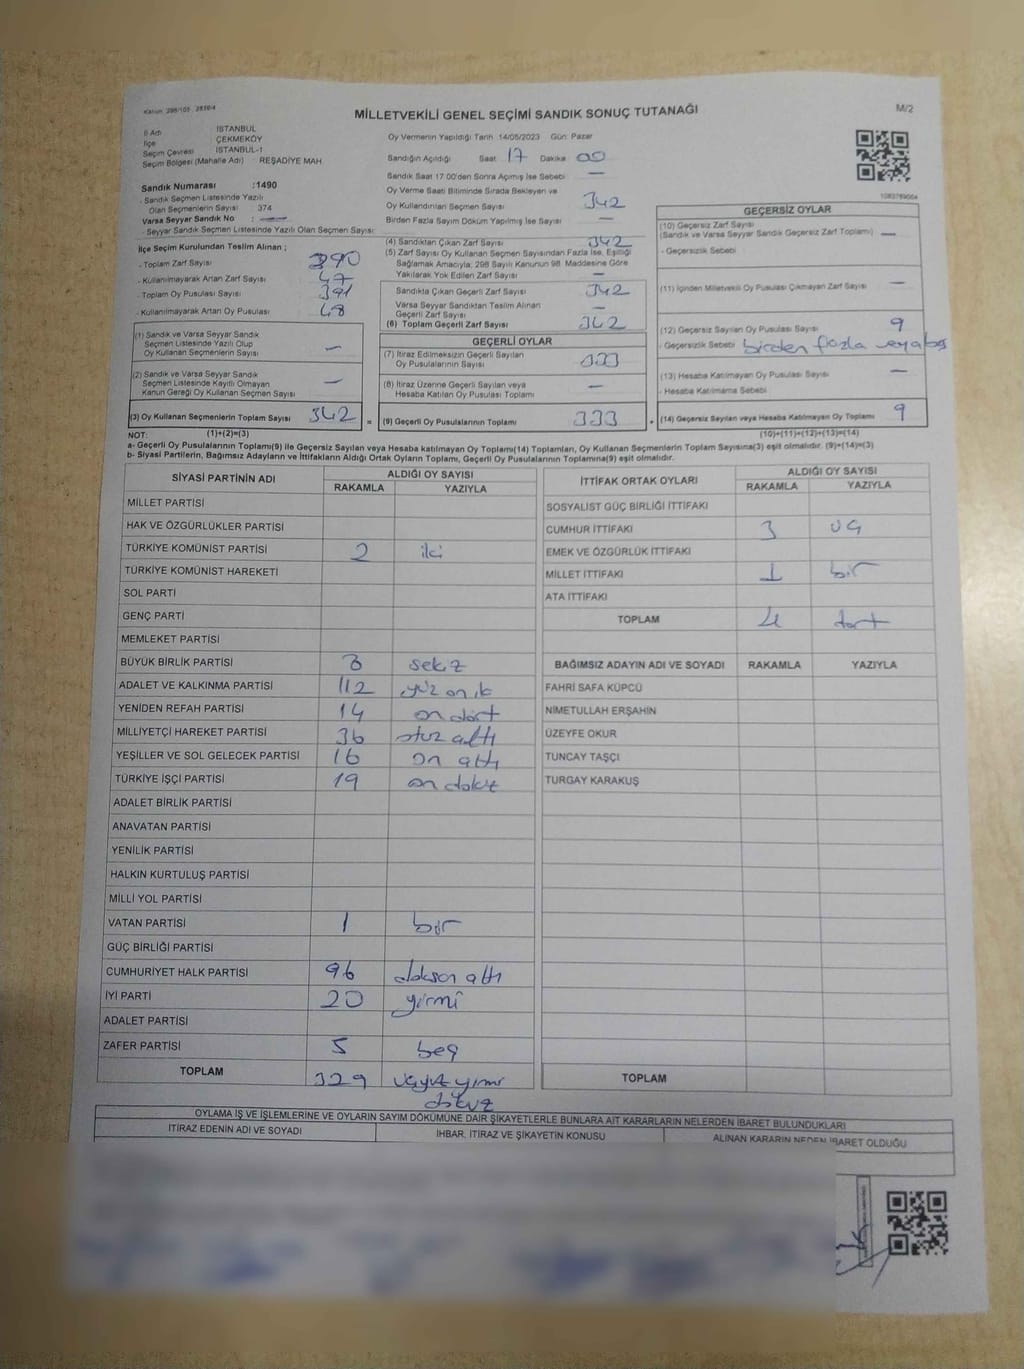 Kanun: 298/105 , 2839/4
MİLLETVEKİLİ GENEL SEÇİMİ SANDIK SONUÇ TUTANAĞI
M/2
İl Adı İSTANBUL
İlçe ÇEKMEKÖY
Seçim Çevresi İSTANBUL-1
Seçim Bölgesi (Mahalle Adı) REŞADİYE MAH
Sandık Numarası :1490
- Sandık Seçmen Listesinde Yazılı
Olan Seçmenlerin Sayısı 374
Varsa Seyyar Sandık No : —
- Seyyar Sandık Seçmen Listesinde Yazılı Olan Seçmen Sayısı:
İlçe Seçim Kurulundan Teslim Alınan ;
- Toplam Zarf Sayısı 390
- Kullanılmayarak Artan Zarf Sayısı 47
- Toplam Oy Pusulası Sayısı 391
- Kullanılmayarak Artan Oy Pusulası 48
(1) Sandık ve Varsa Seyyar Sandık
Seçmen Listesinde Yazılı Olup
Oy Kullanan Seçmenlerin Sayısı —
(2) Sandık ve Varsa Seyyar Sandık
Seçmen Listesinde Kayıtlı Olmayan
Kanun Gereği Oy Kullanan Seçmen Sayısı —
(3) Oy Kullanan Seçmenlerin Toplam Sayısı 342 =
Oy Vermenin Yapıldığı Tarih 14/05/2023 Gün: Pazar
Sandığın Açıldığı Saat 17 Dakika 00
Sandık Saat 17:00'den Sonra Açılmış İse Sebebi —
Oy Verme Saati Bitiminde Sırada Bekleyen ve
Oy Kullandırılan Seçmen Sayısı 342
Birden Fazla Sayım Döküm Yapılmış İse Sayısı —
(4) Sandıktan Çıkan Zarf Sayısı 342
(5) Zarf Sayısı Oy Kullanan Seçmen Sayısından Fazla İse, Eşitliği
Sağlamak Amacıyla, 298 Sayılı Kanunun 98. Maddesine Göre
Yakılarak Yok Edilen Zarf Sayısı —
Sandıkta Çıkan Geçerli Zarf Sayısı 342
Varsa Seyyar Sandıktan Teslim Alınan
Geçerli Zarf Sayısı —
(6) Toplam Geçerli Zarf Sayısı 342
GEÇERLİ OYLAR
(7) İtiraz Edilmeksizin Geçerli Sayılan
Oy Pusulalarının Sayısı 333
(8) İtiraz Üzerine Geçerli Sayılan veya
Hesaba Katılan Oy Pusulası Toplamı —
(9) Geçerli Oy Pusulalarının Toplamı 333 +
1083789004
GEÇERSİZ OYLAR
(10) Geçersiz Zarf Sayısı
(Sandık ve Varsa Seyyar Sandık Geçersiz Zarf Toplamı) —
- Geçersizlik Sebebi
(11) İçinden Milletvekili Oy Pusulası Çıkmayan Zarf Sayısı —
(12) Geçersiz Sayılan Oy Pusulası Sayısı 9
- Geçersizlik Sebebi birden fazla veya boş
(13) Hesaba Katılmayan Oy Pusulası Sayısı —
- Hesaba Katılmama Sebebi
(14) Geçersiz Sayılan veya Hesaba Katılmayan Oy Toplamı 9
NOT: (1)+(2)=(3) (10)+(11)+(12)+(13)=(14)
a- Geçerli Oy Pusulalarının Toplamı(9) ile Geçersiz Sayılan veya Hesaba katılmayan Oy Toplamı(14) Toplamları, Oy Kullanan Seçmenlerin Toplam Sayısına(3) eşit olmalıdır. (9)+(14)=(3)
b- Siyasi Partilerin, Bağımsız Adayların ve İttifakların Aldığı Ortak Oyların Toplamı, Geçerli Oy Pusulalarının Toplamına(9) eşit olmalıdır.
SİYASİ PARTİNİN ADI ALDIĞI OY SAYISI
RAKAMLA YAZIYLA
MİLLET PARTİSİ
HAK VE ÖZGÜRLÜKLER PARTİSİ
TÜRKİYE KOMÜNİST PARTİSİ 2 iki
TÜRKİYE KOMÜNİST HAREKETİ
SOL PARTİ
GENÇ PARTİ
MEMLEKET PARTİSİ
BÜYÜK BİRLİK PARTİSİ 8 sekiz
ADALET VE KALKINMA PARTİSİ 112 yüz on ik
YENİDEN REFAH PARTİSİ 14 on dört
MİLLİYETÇİ HAREKET PARTİSİ 36 otuz altı
YEŞİLLER VE SOL GELECEK PARTİSİ 16 on altı
TÜRKİYE İŞÇİ PARTİSİ 19 on dokuz
ADALET BİRLİK PARTİSİ
ANAVATAN PARTİSİ
YENİLİK PARTİSİ
HALKIN KURTULUŞ PARTİSİ
MİLLİ YOL PARTİSİ
VATAN PARTİSİ 1 bir
GÜÇ BİRLİĞİ PARTİSİ
CUMHURİYET HALK PARTİSİ 96 doksan altı
İYİ PARTİ 20 yirmi
ADALET PARTİSİ
ZAFER PARTİSİ 5 beş
TOPLAM 329 üçyüz yirmi
dokuz
İTTİFAK ORTAK OYLARI ALDIĞI OY SAYISI
RAKAMLA YAZIYLA
SOSYALİST GÜÇ BİRLİĞİ İTTİFAKI
CUMHUR İTTİFAKI 3 üç
EMEK VE ÖZGÜRLÜK İTTİFAKI
MİLLET İTTİFAKI 1 bir
ATA İTTİFAKI
TOPLAM 4 dört
BAĞIMSIZ ADAYIN ADI VE SOYADI RAKAMLA YAZIYLA
FAHRİ SAFA KÜPCÜ
NİMETULLAH ERŞAHİN
ÜZEYFE OKUR
TUNCAY TAŞÇI
TURGAY KARAKUŞ
TOPLAM
OYLAMA İŞ VE İŞLEMLERİNE VE OYLARIN SAYIM DÖKÜMÜNE DAİR ŞİKAYETLERLE BUNLARA AİT KARARLARIN NELERDEN İBARET BULUNDUKLARI
İTİRAZ EDENİN ADI VE SOYADI İHBAR, İTİRAZ VE ŞİKAYETİN KONUSU ALINAN KARARIN NEDEN İBARET OLDUĞU